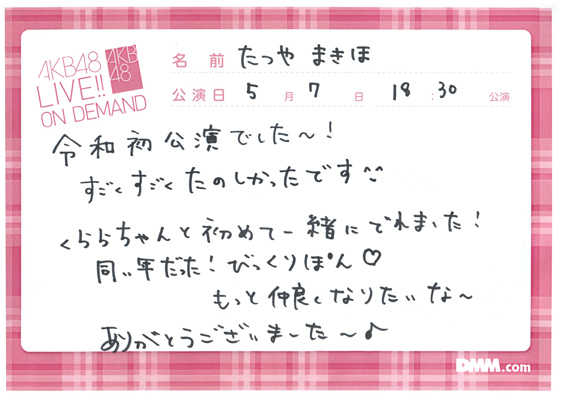 AKB48
LIVE!!
ON DEMAND
AKB
48
名前 たつや まきほ
公演日 5月7日 18:30公演
令和初公演でした〜!
すごくすごくたのしかったです
くららちゃんと初めて一緒にでれました!
同い年だった!びっくりぽん♡
もっと仲良くなりたいな〜
ありがとうございました〜♪
DMM.com